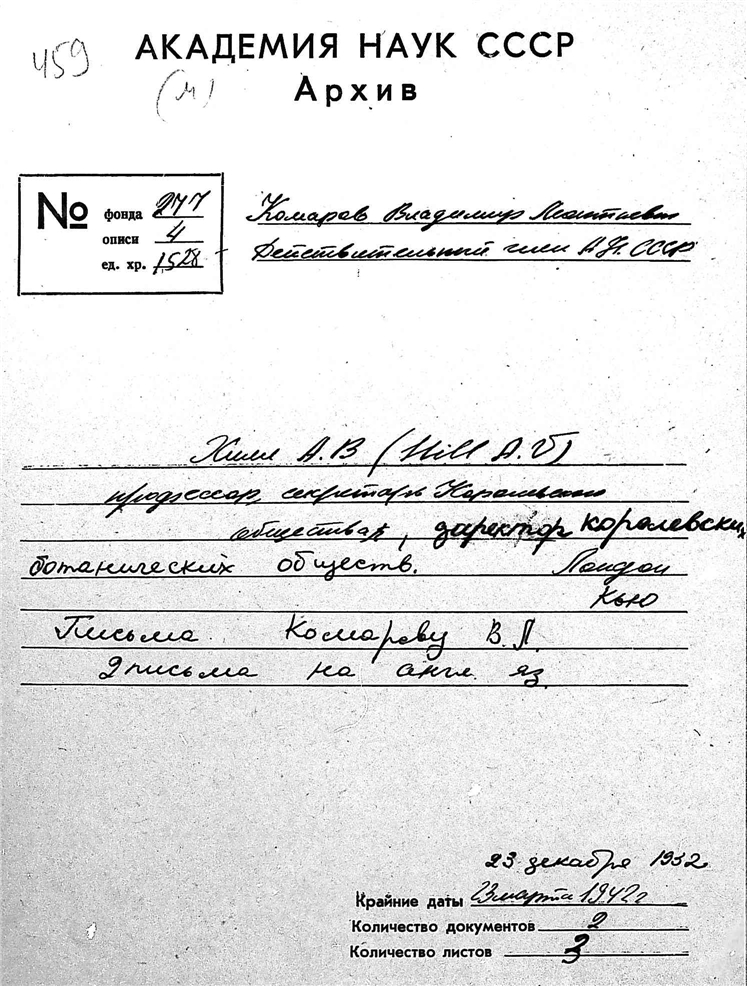 459
АКАДЕМИЯ НАУК СССР
(м)
Архив
№ фонда 277
описи 4
ед. хр. 1528
Комаров Владимир Леонтьевич
Действительный член А.Н. СССР
Хилл А.В (Hill A.V)
профессор, секретарь Королевского
общества, директор королевских
ботанических обществ. Лондон
Кью
Письма Комарову В.Л.
2 письма на англ. яз.
23 декабря 1932
Крайние даты 23 марта 1942 г
Количество документов 2
Количество листов 3